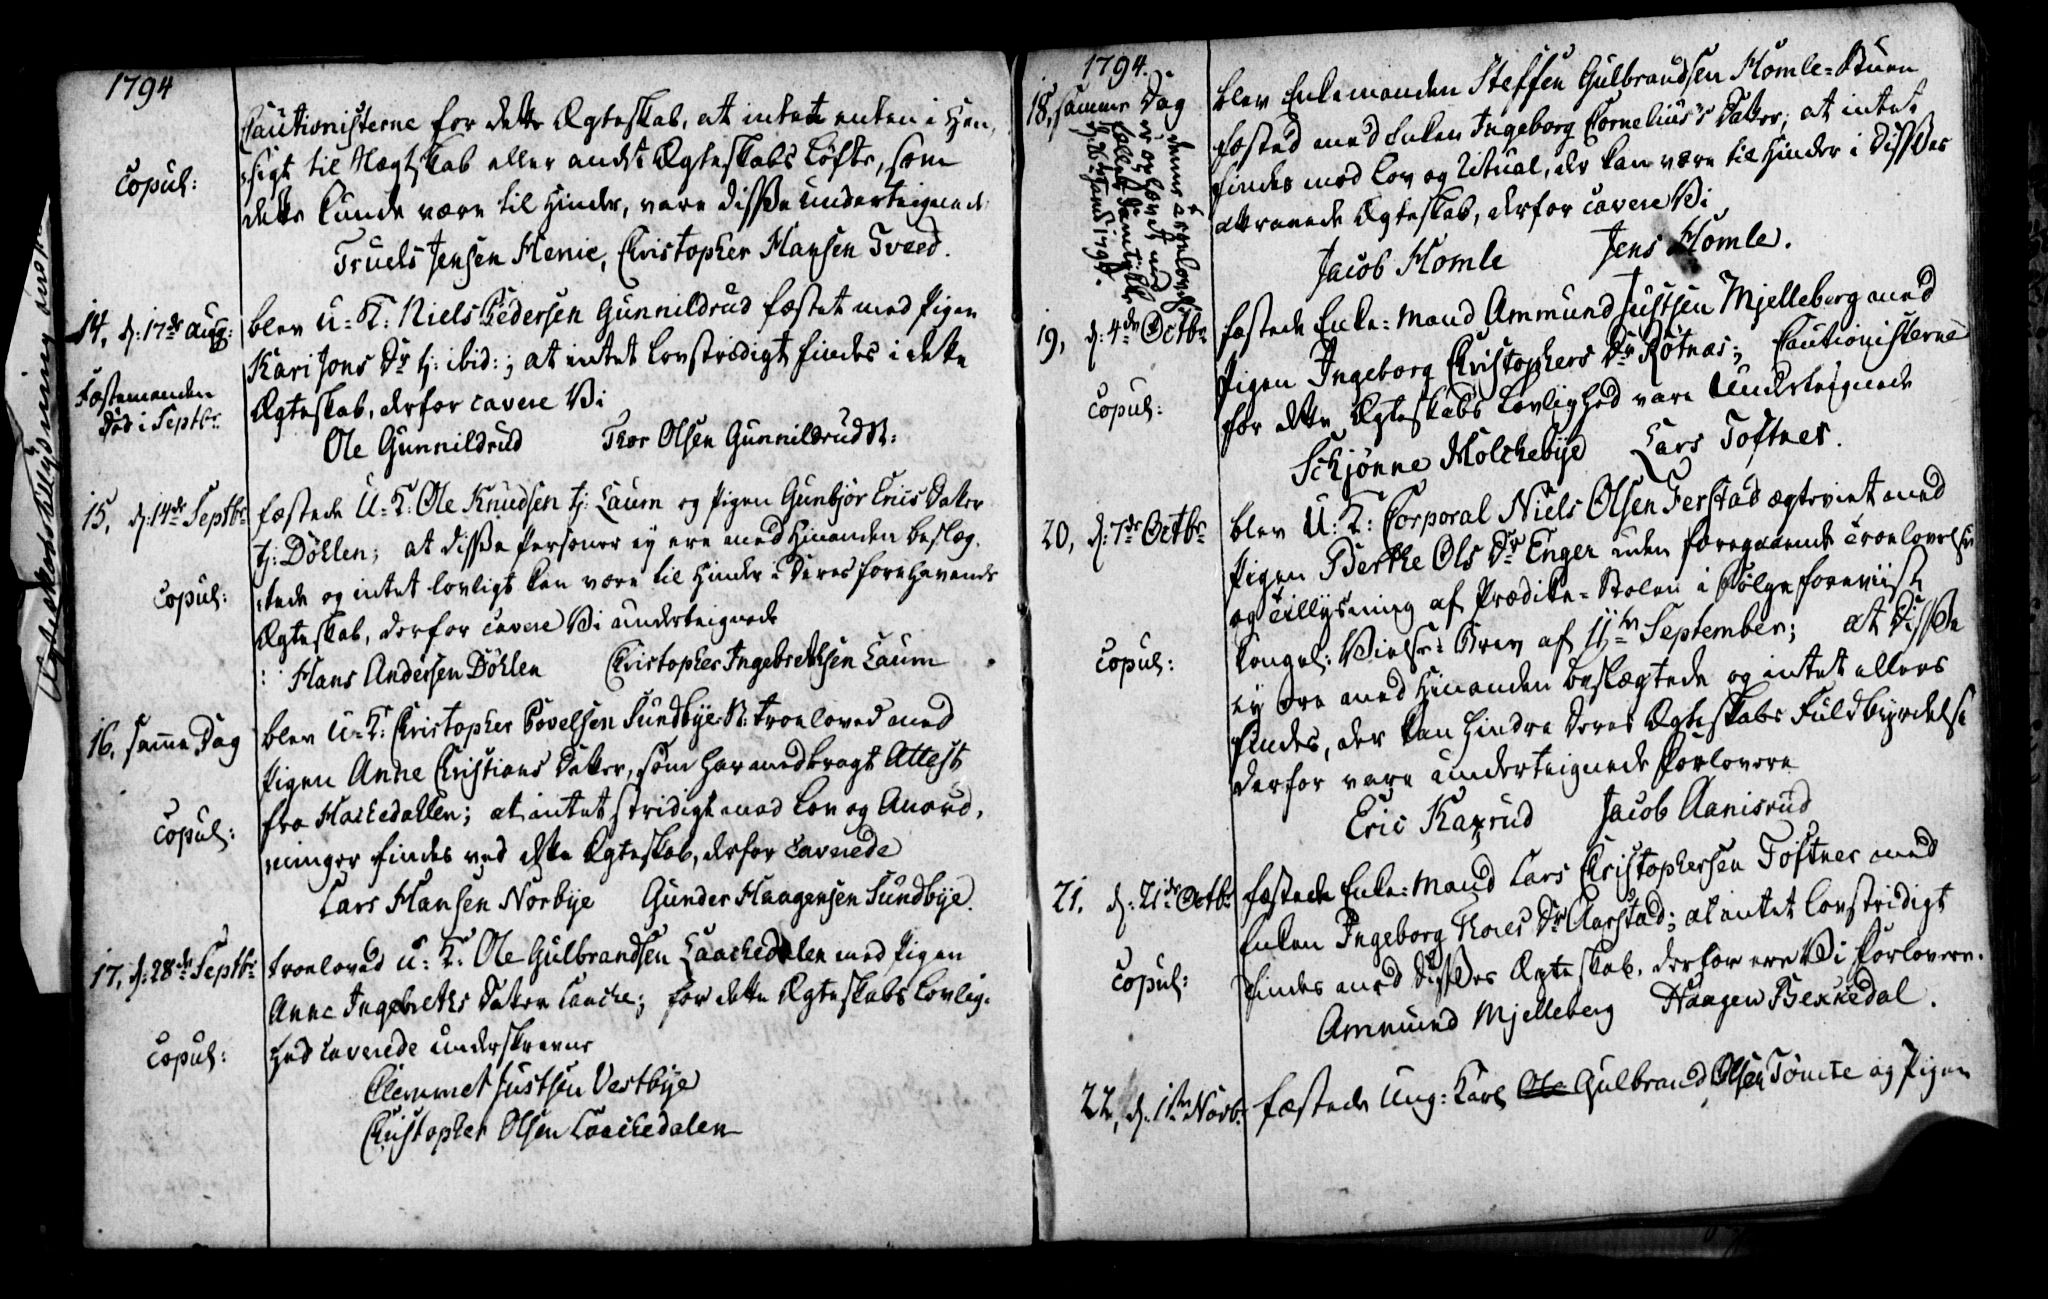 1794
Cautionisterne for dette Ægteskab, at intet enten i Hen¬
sigt til Slægtskab eller andet Ægteskabs Løfte, som
Copul:
dette kunde være til Hinder, vare disse underteignede:
Truels Jensen Henie, Christopher Hansen Tveed.
14, d: 17de Aug: blev U: K: Niels Pedersen Gunnildrud fæstet med Pigen
Kari Jons Dr tj: ibid:; at intet lovstridigt findes i dette
Fæstemanden
død i Septbr.
Ægteskab, derfor cavere Vi
Ole Gunnildrud Thor Olsen Gunnildrud N:
15, d: 14de Septbr fæstede U: K: Ole Knudsen tj: Laum og Pigen Gunbjør Erics Datter
tj: Döhlen; at disse Personer ey ere med Hinanden beslæg¬
Copul:
tede og intet lovligt kan være til Hinder i Deres forehavende
Ægteskab, derfor cavere Vi underteignede
Hans Andersen Döhlen Christopher Ingebrethsen Laum
16, samme Dag blev U: K: Christopher Povelsen Sundbye N: troeloved med
Pigen Anne Christians Datter, som har medbragt Attest
Copul:
fra Hackedallen; at intet stridigt mod Lov og Anord¬
ninger findes ved dette Ægteskab, derfor caverede
Lars Hansen Norbye Gunder Haagensen Sundbye.
17, d: 28de Septbr troeloved U: K: Ole Gulbrandsen Laachedalen med Pigen
Anne Ingebreths Datter Laache; for dette Ægteskabs Lovlig¬
Copul:
hed caverede underskrevne
Clemmet Justsen Vestbye
Christopher Olsen Laachedalen
1794.
18, samme Dag blev Enkemanden Steffen Gulbrandsen Homle-Stuen
fæsted med Enken Ingeborg Cornelius's Datter, at intet
findes mod Lov og Ritual, der kan være til Hinder i disses
attraaede Ægteskab, derfor cavere Vi
Jacob Homle Jens Homle.
denne Troelovelse
er ophævet med
fælleds Samtykke
1794.
19, d: 4de Octbr fæstede Enke-Mand Ammund Justsen Mjelleberg med
Pigen Ingeborg Christophers Dr Rötnæs; Cautionisterne
Copul:
for dette Ægteskabs Lovlighed vare Underteignede
Schjönne Molchebye Lars Toftner.
20, d: 7de Octbr blev U: K: Corporal Niels Olsen Ferstad ægteviet med
Pigen Berthe Ols Dr Enger uden foregaaende Troelovelse
og Tillysning af Prædike-Stolen i Følge foreviist
Copul:
Kongel: Vielse-Brev af 11te September; at disse
ey ere med Hinanden beslægtede og intet ellers
findes, der kan hindre Deres Ægteskabs Fuldbyrdelse
derfor vare underteignede Forlovere
Eric Kaxrud Jacob Aanisrud
21, d: 21de Octbr fæstede Enke-Mand Lars Christophersen Toftner med
Enken Ingeborg Thores Dr Aarstad; at intet lovstridigt
Copul:
findes med disses Ægteskab, derfor ere Vi Forlovere.
Ammund Mjelleberg Haagen Bekkedal.
22, d: 1te Novbr fæstede Ung: Karl Ole Gulbrand Olsen Tömte og Pigen